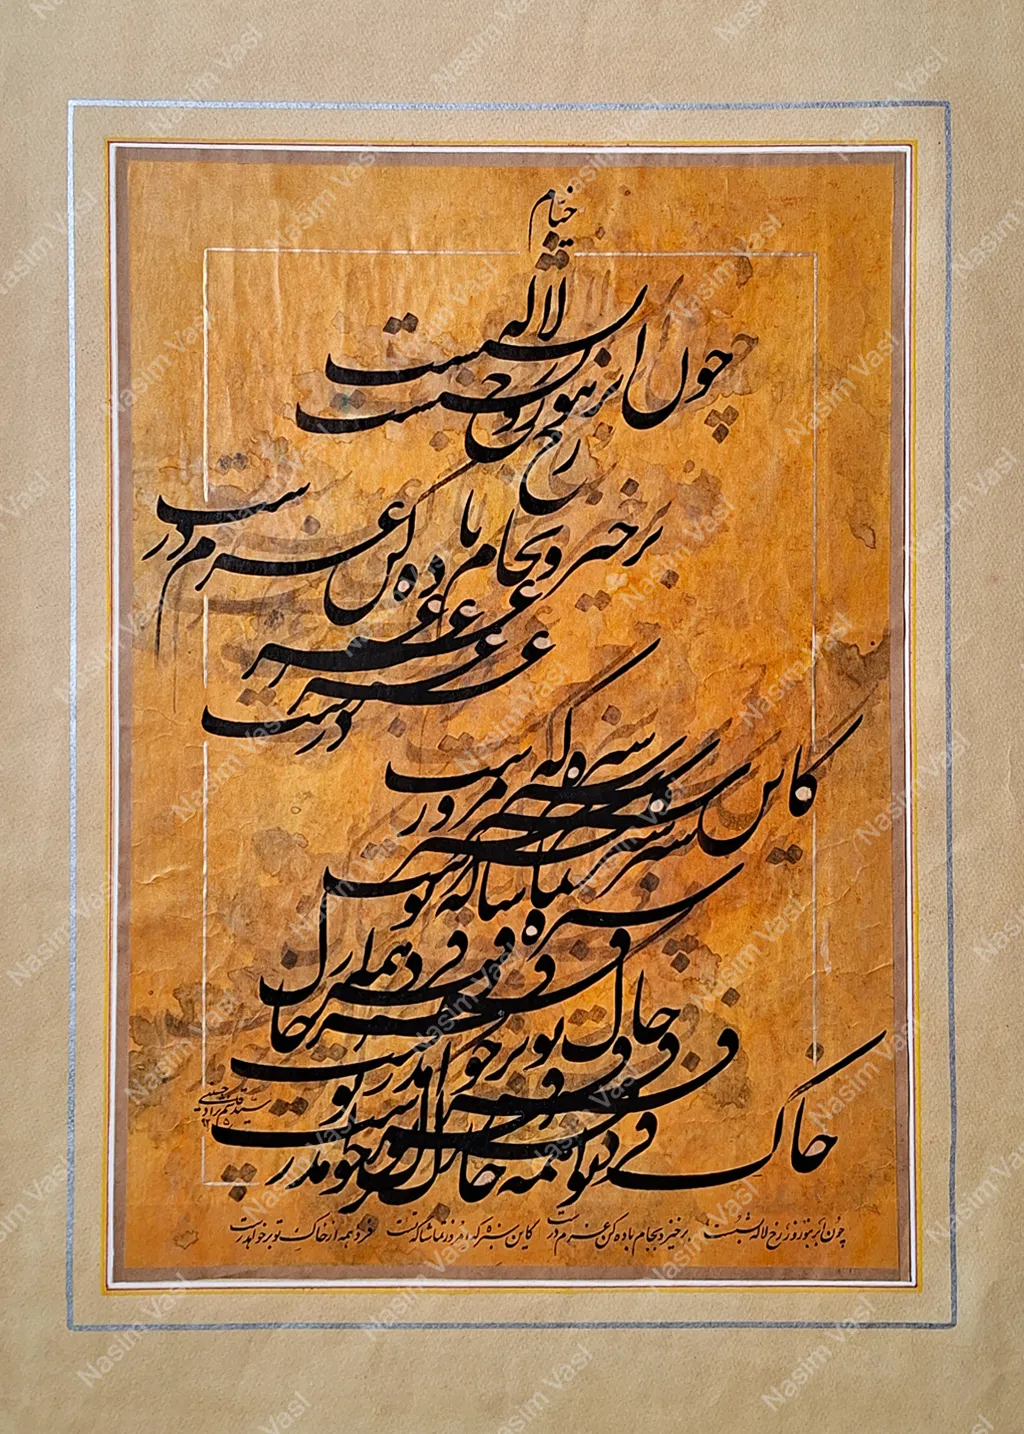 خیام
چون ابر بنوروز رخ لاله بشست
برخیز و بجام باده کن عزم درست
کاین سبزه که امروز تماشاگه تست
فردا همه از خاک تو برخواهد رست
چون ابر بنوروز رخ لاله بشست برخیز و بجام باده کن عزم درست کاین سبزه که امروز تماشاگه تست فردا همه از خاک تو برخواهد رست
Nasim Vasl